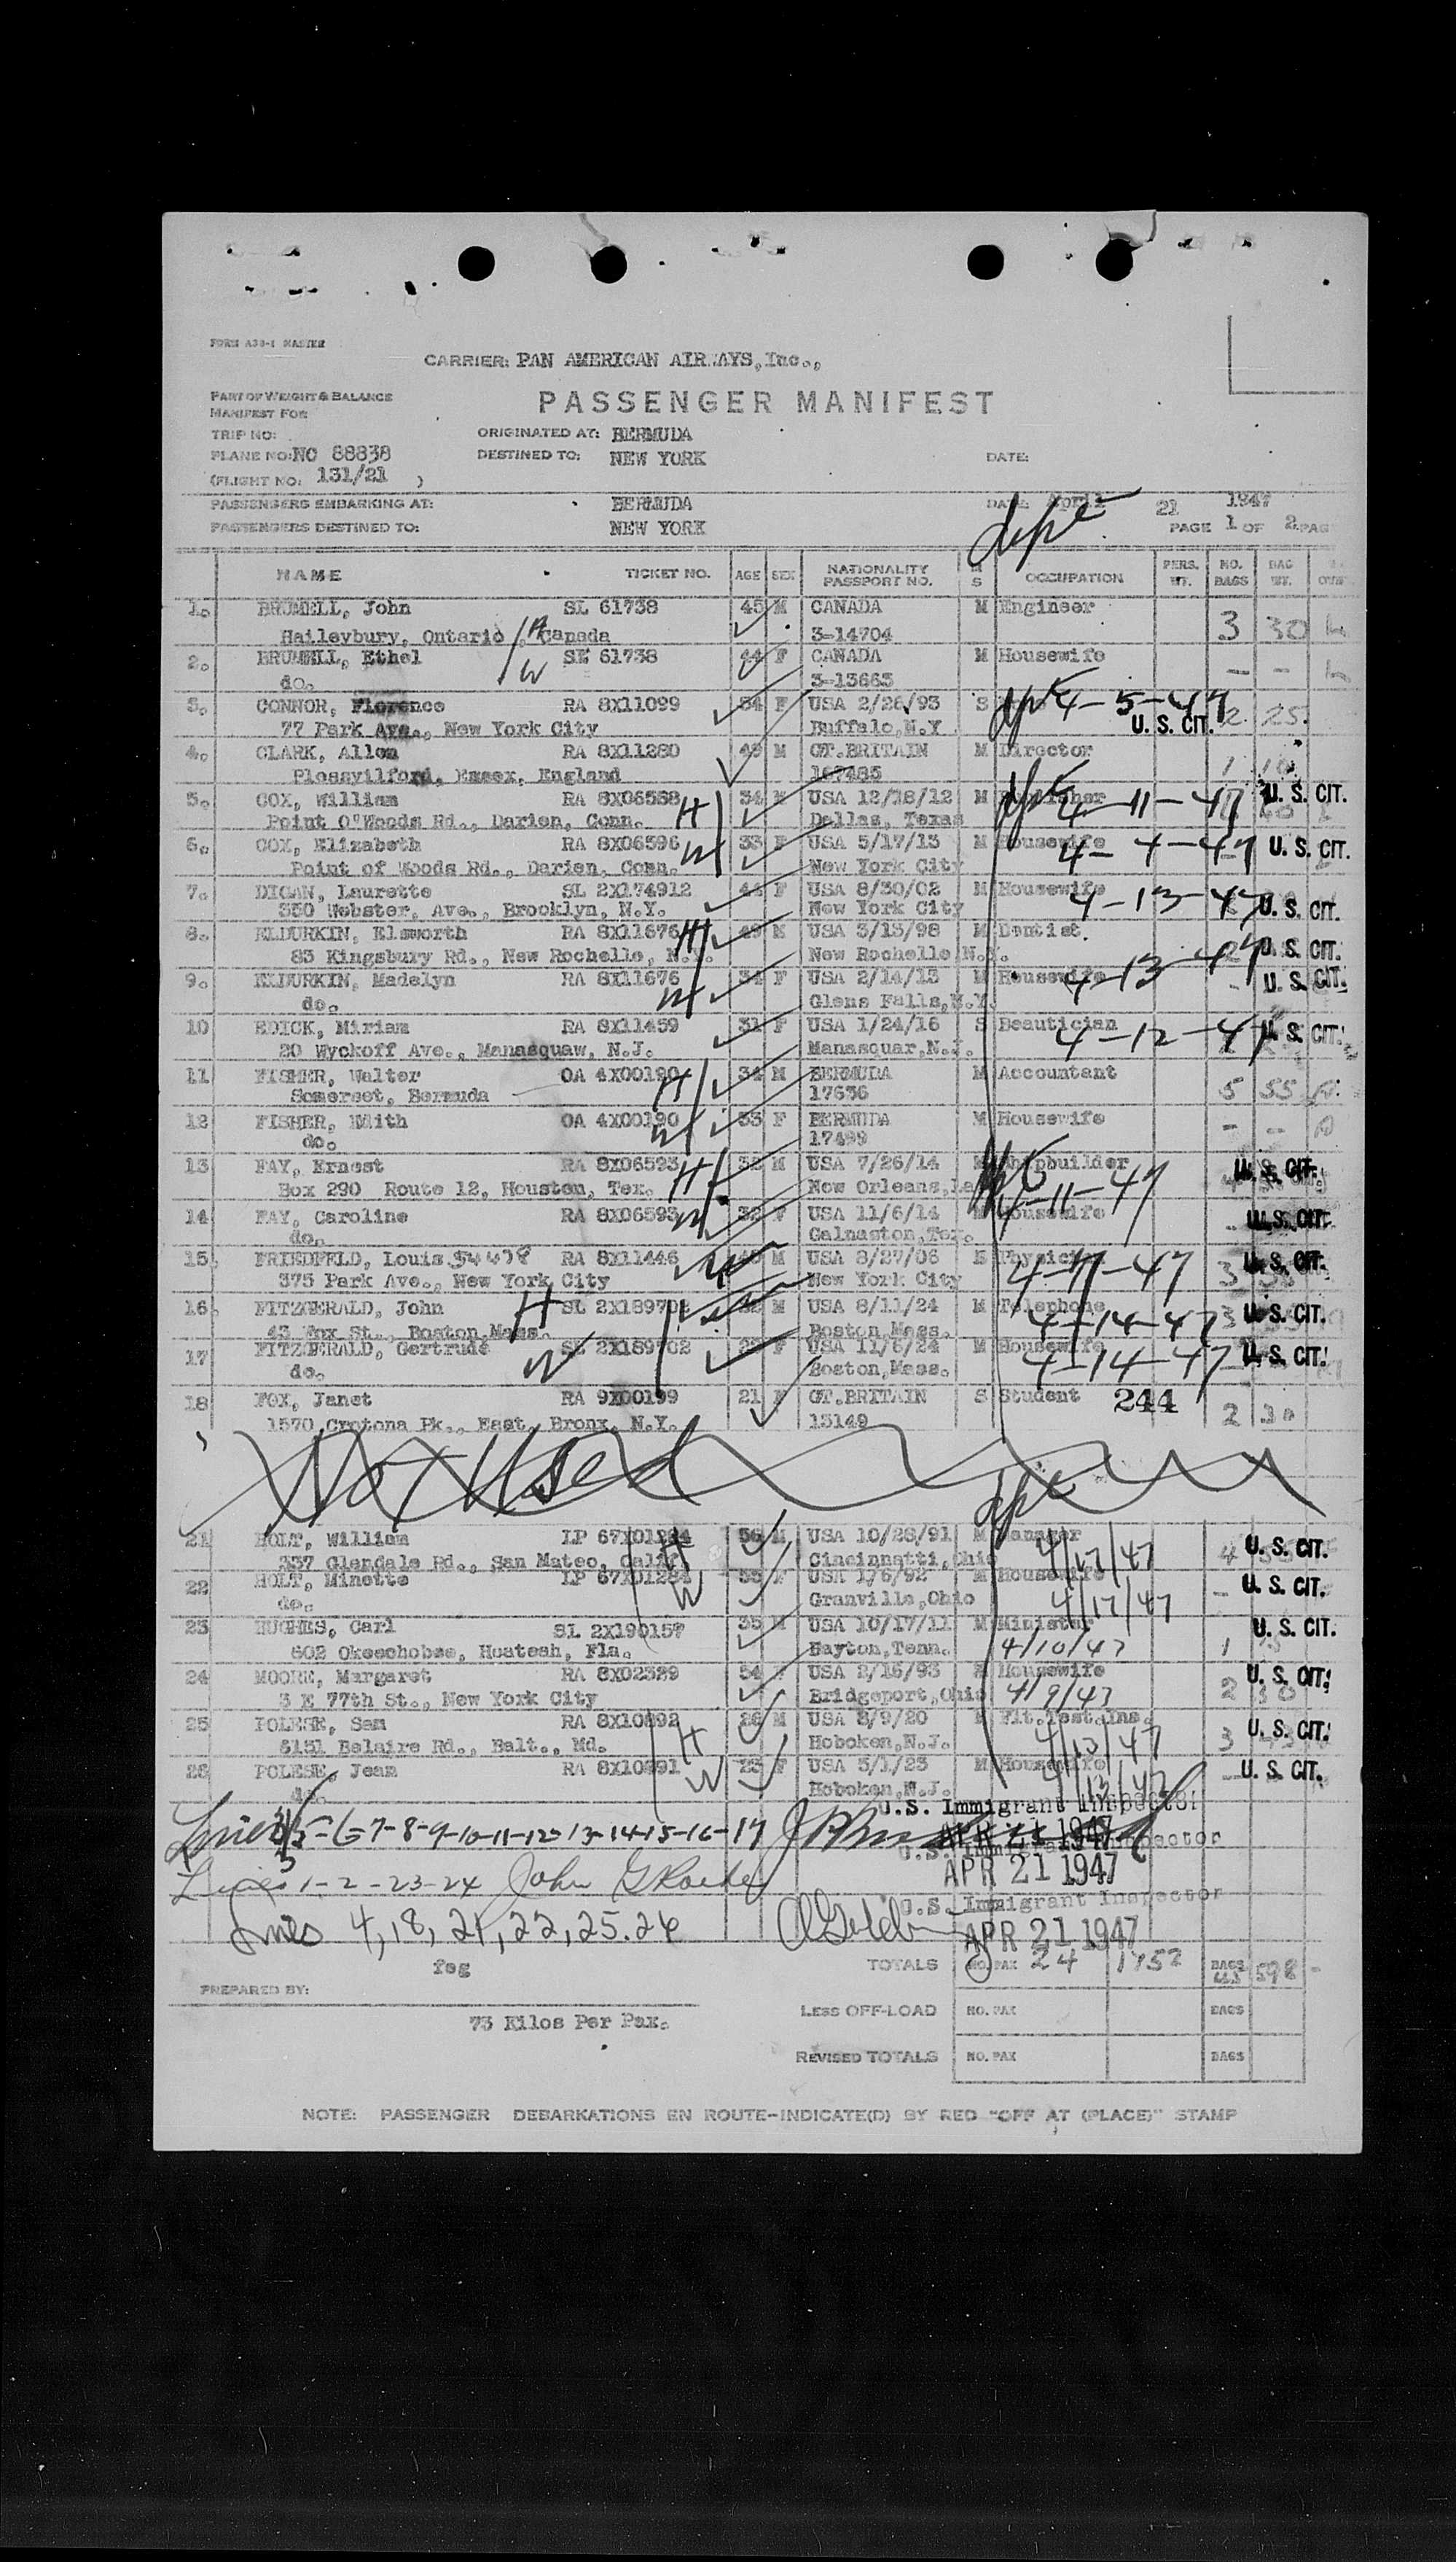 FORM A30-1 MASTER
CARRIER: PAN AMERICAN AIRWAYS, Inc.,
PART OF WEIGHT & BALANCE
MANIFEST FOR
PASSENGER MANIFEST
TRIP NO:
ORIGINATED AT: BERMUDA
PLANE NO: NC 88838
DESTINED TO: NEW YORK
DATE:
(FLIGHT NO: 131/21 )
PASSENGERS EMBARKING AT: BERMUDA
DATE: April 21 1947
PASSENGERS DESTINED TO: NEW YORK
PAGE 1 OF 2 PAG
dept
NAME TICKET NO. AGE SEX NATIONALITY PASSPORT NO. M S OCCUPATION PERS. WT. NO. BAGS BAG WT.
1. BRUMELL, John SL 61738 45 M CANADA M Engineer
Haileybury, Ontario, Canada 3-14704 3 30
2. BRUMELL, Ethel SL 61738 44 F CANADA M Housewife
do. W 3-13663 - -
3. CONNOR, Florence RA 8X11099 54 F USA 2/26/93 S dpt 4-5-47
77 Park Ave., New York City Buffalo, N.Y. U. S. CIT. 2 25
4. CLARK, Allen RA 8X11280 49 M GT.BRITAIN M Director
Plossyilford, Essex, England 167485 1
5. COX, William RA 8X06588 H 34 M USA 12/18/12 M Publisher 4-11-47 U. S. CIT.
Point O'Woods Rd., Darien, Conn. Dallas, Texas
6. COX, Elizabeth RA 8X06596 W 33 F USA 5/17/13 M Housewife 4-4-47 U. S. CIT.
Point of Woods Rd., Darien, Conn. New York City
7. DIGAN, Laurette SL 2X174912 44 F USA 8/30/02 M Housewife 4-13-47 U. S. CIT.
350 Webster, Ave., Brooklyn, N.Y. New York City
8. ELDURKIN, Elsworth RA 8X11676 H 49 M USA 3/15/98 M Dentist
83 Kingsbury Rd., New Rochelle, N.Y. New Rochelle, N.Y. 4-13-47 U. S. CIT.
9. ELDURKIN, Madelyn RA 8X11676 W 34 F USA 2/14/13 M Housewife U. S. CIT.
do. Glens Falls, N.Y.
10 EDICK, Miriam RA 8X11459 31 F USA 1/24/16 S Beautician 4-12-47 U. S. CIT.
20 Wyckoff Ave., Manasquaw, N.J. Manasquar, N.J.
11 FISHER, Walter OA 4X00190 H 34 M BERMUDA M Accountant
Somerset, Bermuda 17636 5 55
12 FISHER, Edith OA 4X00190 W 33 F BERMUDA M Housewife
do. 17499 - -
13 FAY, Ernest RA 8X06593 H 32 M USA 7/26/14 M Shipbuilder 4-11-47 U. S. CIT.
Box 290 Route 12, Houston, Tex. New Orleans, La
14 FAY, Caroline RA 8X06593 W 32 F USA 11/6/14 M Housewife U. S. CIT.
do. Galnaston, Tex.
15. FRIEDFELD, Louis RA 8X11446 40 M USA 8/27/06 4-11-47 3 U. S. CIT.
375 Park Ave., New York City New York City
16. FITZGERALD, John H SL 2X189702 22 M USA 8/11/24 M Telephone 4-14-47 3 U. S. CIT.
43 Wox St., Boston, Mass. Boston, Mass.
17 FITZGERALD, Gertrude W SL 2X189702 22 F USA 11/6/24 M Housewife 4-14-47 U. S. CIT.
do. Boston, Mass.
18 FOX, Janet RA 9X00199 21 F GT.BRITAIN S Student 244
1570 Crotona Pk., East, Bronx, N.Y. 13149 2 30
Not Used
21 HOLT, William LP 67X01284 H 56 M USA 10/28/91 M Manager 4/17/47 4 U. S. CIT.
337 Glendale Rd., San Mateo, Calif Cincinnatti, Ohio
22 HOLT, Minette LP 67X01284 W 55 F USA 1/6/92 M Housewife 4/17/47 - U. S. CIT.
do. Granville, Ohio
23 HUGHES, Carl SL 2X190157 35 M USA 10/17/11 M Minister U. S. CIT.
602 Okeechobee, Hoatesh, Fla. Dayton, Tenn. 4/10/47 1
24 MOORE, Margaret RA 8X02329 54 F USA 2/16/93 Housewife U. S. CIT.
3 E 77th St., New York City Bridgeport, Ohio 4/9/47 2
25 POLESE, Sam RA 8X10892 H 26 M USA 8/9/20 Flt.Test.Ins. 4/13/47 3 U. S. CIT.
6151 Belaire Rd., Balt., Md. Hoboken, N.J.
26 POLESE, Jean RA 8X10891 W 23 F USA 5/1/23 M Housewife 4/13/47 - U. S. CIT.
do. Hoboken, N.J.
U.S. Immigrant Inspector
Lines 3/5-6-7-8-9-10-11-12-13-14-15-16-17 APR 21 1947
U.S. Immigrant Inspector
Lines 1-2-23-24 John APR 21 1947
U.S. Immigrant Inspector
Lines 4, 18, 21, 22, 25. 26 APR 21 1947
fog TOTALS NO. PAX 24 1752 BAGS 598
PREPARED BY:
73 Kilos Per Pax. LESS OFF-LOAD NO. PAX BAGS
REVISED TOTALS NO. PAX BAGS
NOTE: PASSENGER DEBARKATIONS EN ROUTE-INDICATE(D) BY RED "OFF AT (PLACE)" STAMP